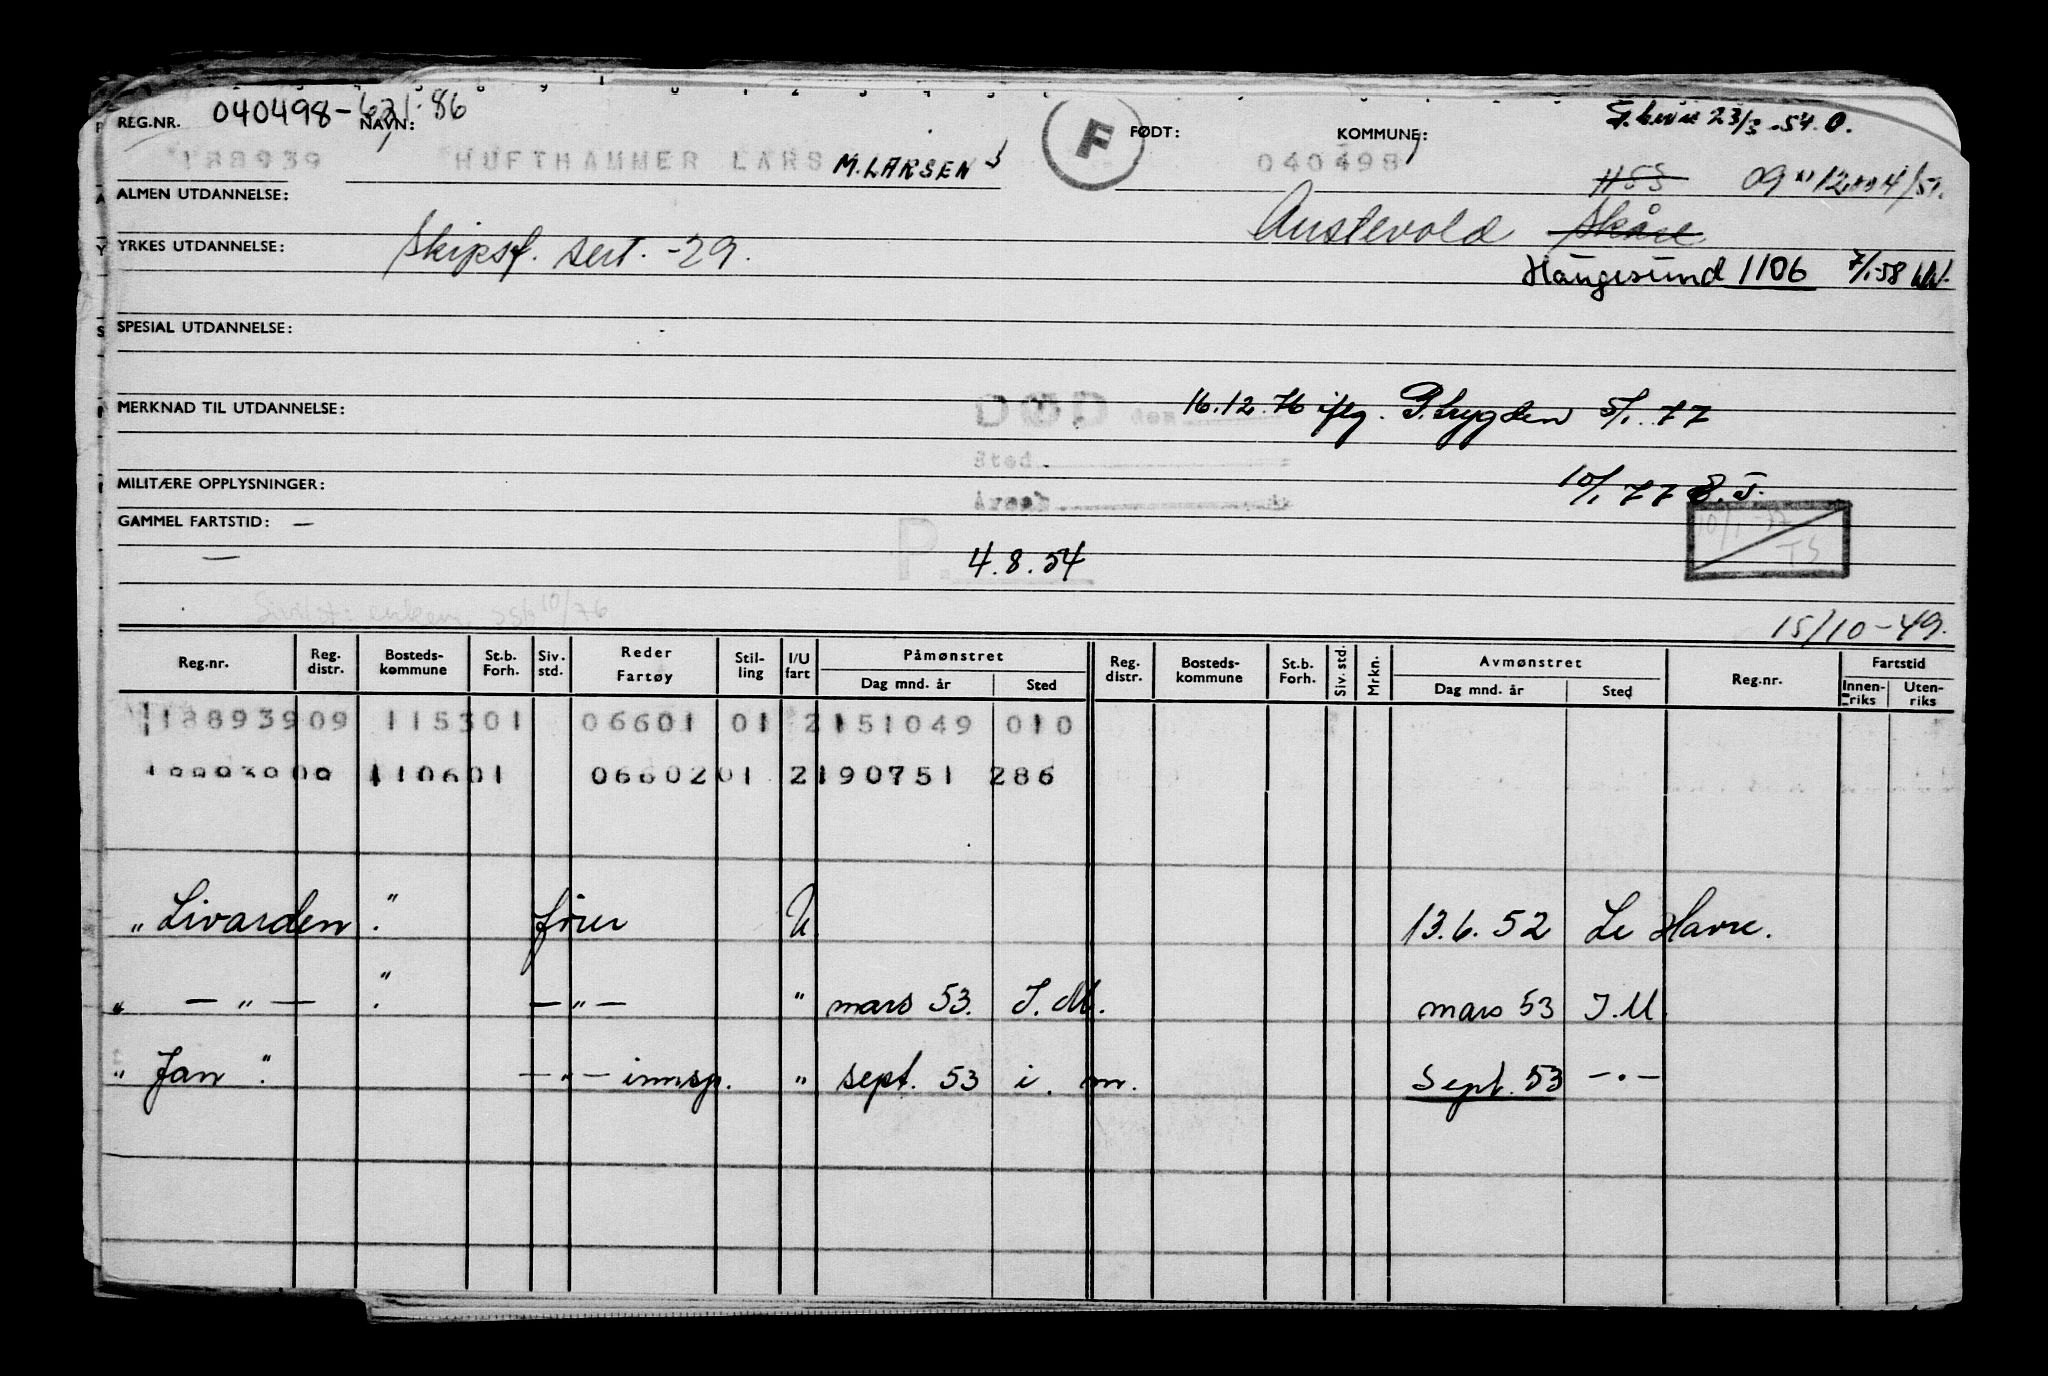 REG.NR. 040498-621.86 NAVN: F FØDT: KOMMUNE: 23/3.54. O.
188939 HUFTHAMMER LARS M. LARSEN 040498 HSS 09
ALMEN UTDANNELSE:
Austevold Skåre
YRKES UTDANNELSE: Skipsf. sert. -29.
Haugesund 1106 7/1-58
SPESIAL UTDANNELSE:
MERKNAD TIL UTDANNELSE: DØD den 16.12.76 iflg. P.trygden 5/1.77
Sted
MILITÆRE OPPLYSNINGER: 10/1 77
Årsak
GAMMEL FARTSTID: —
— P. 4.8.54
10/76
15/10-49.
Reg.nr. Reg. distr. Bosteds- kommune St.b. Forh. Siv. std. Reder Fartøy Stil- ling I/U fart Påmønstret Dag mnd. år Sted Reg. distr. Bosteds- kommune St.b. Forh. Siv. std. Mrkn. Avmønstret Dag mnd. år Sted Reg.nr. Fartstid Innen- riks Uten- riks
188939 09 1153 01 06601 01 2 151049 010
188939 09 1106 01 06602 01 2 190751 286
" Livarden " fører U 13.6.52 Le Havre.
" — " — " — " — " mars 53. I. M. mars 53 I.M.
" Jan " — " — innsp. " sept. 53 i. m. Sept. 53 — " —